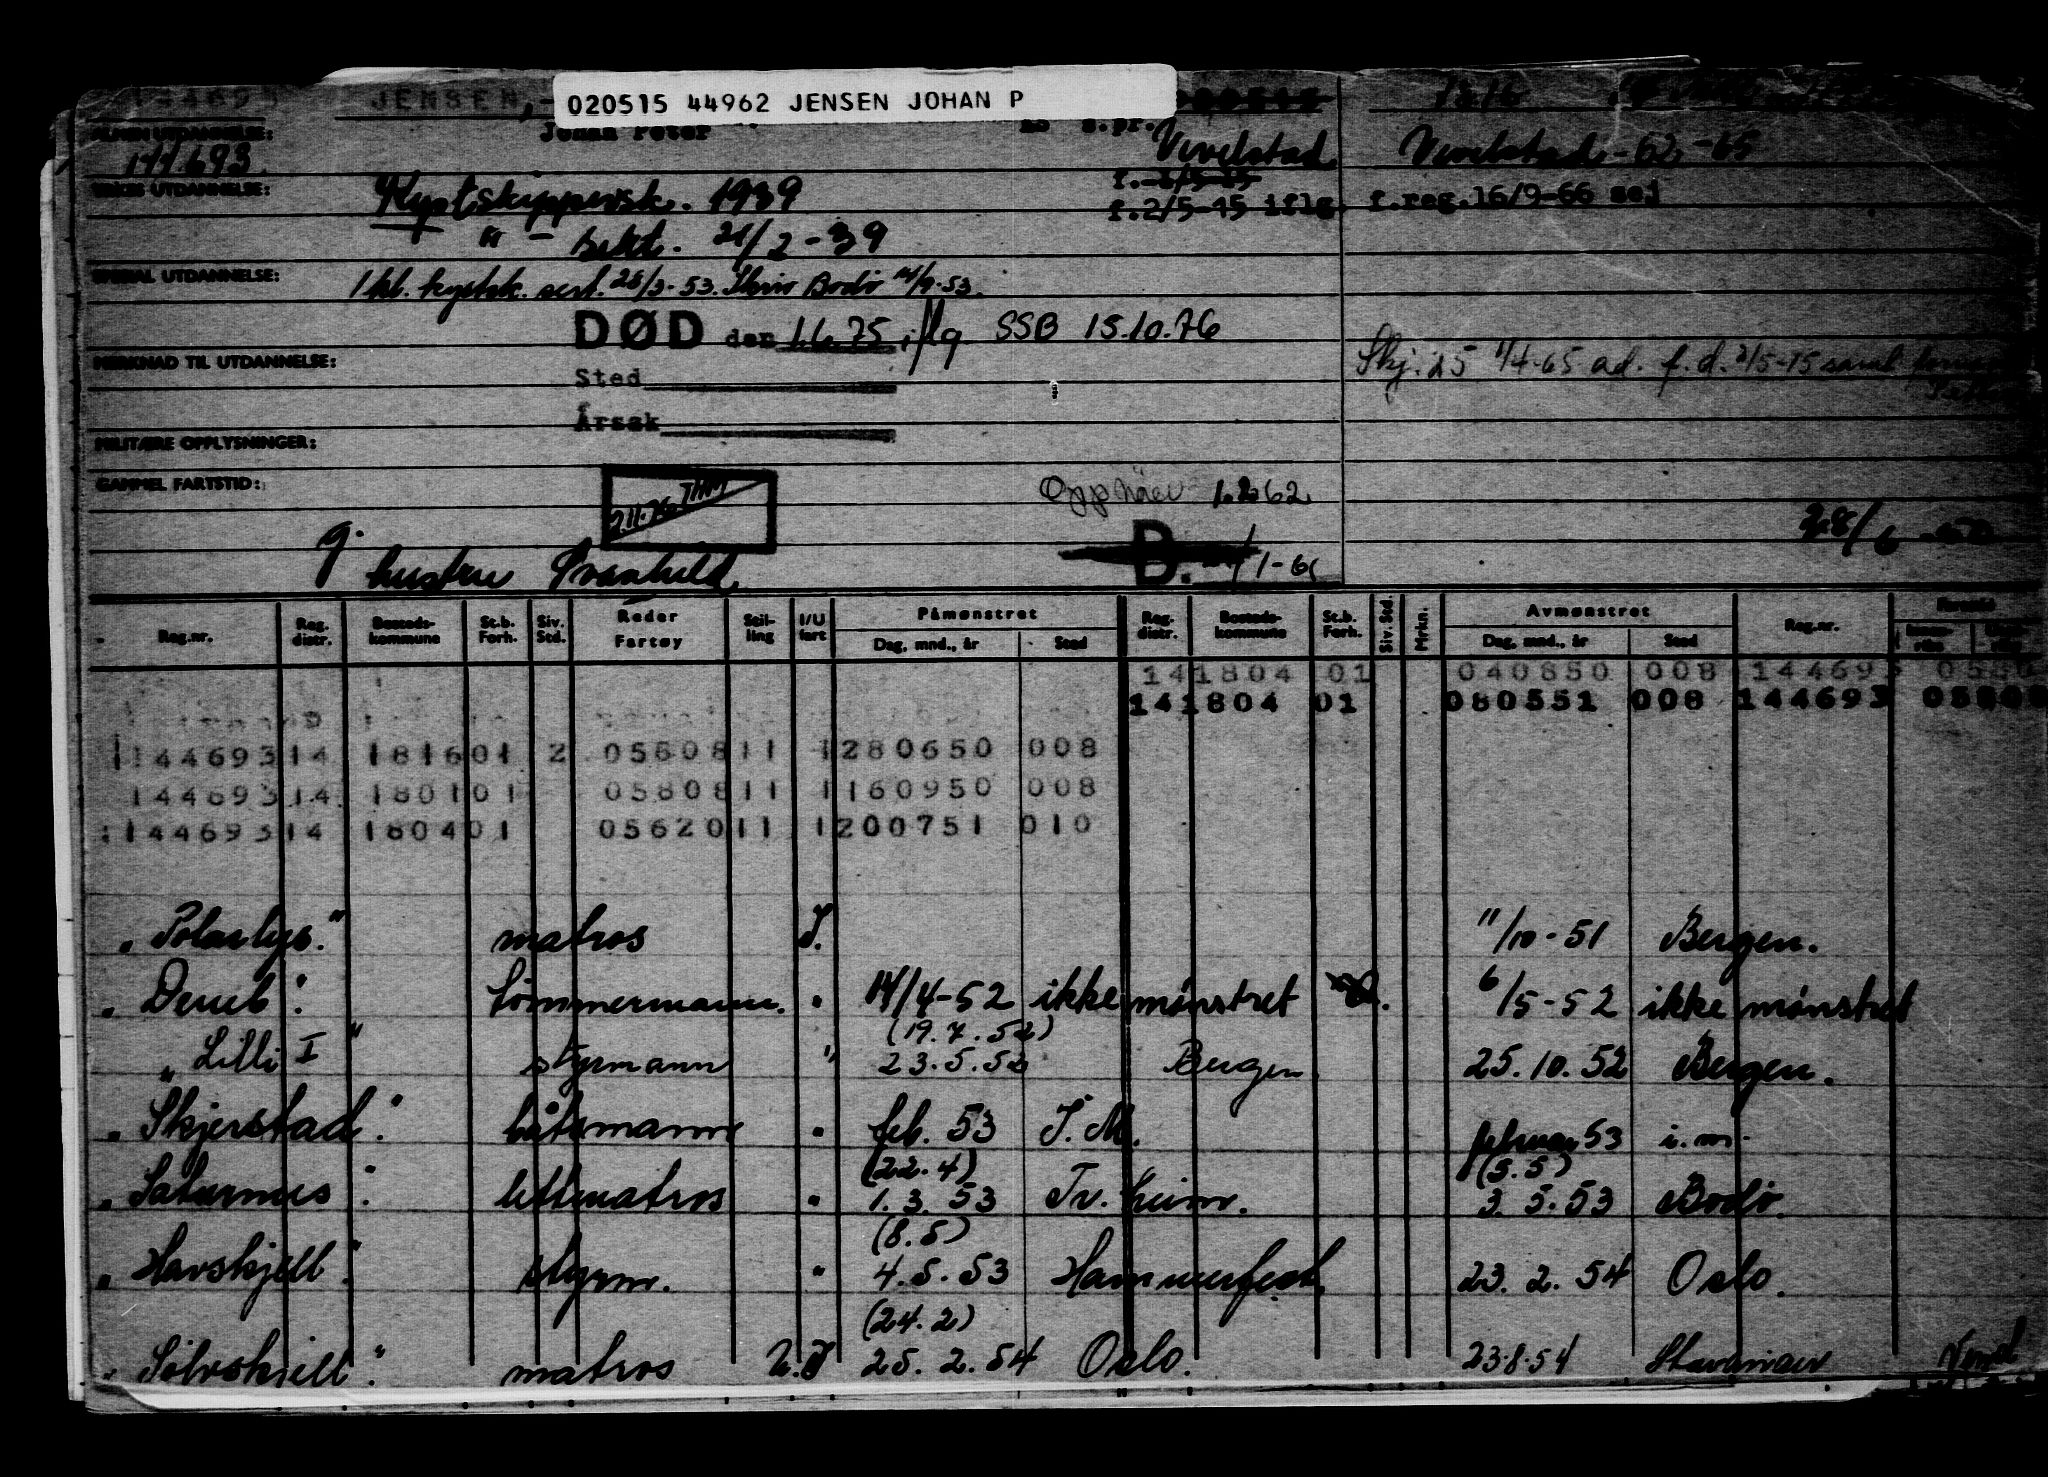 020515 44962 JENSEN JOHAN P
JENSEN,
Johan Peter
s.pr.
1816
ALMEN UTDANNELSE:
144.693
Vevelstad
Vevelstad -62, -65
YRKES UTDANNELSE:
Kystskippersk. 1939
f.2/5-15
f.2/5-45 iflg. f.reg.16/9-66 sej
" - sekt. 21/2-39
SPESIAL UTDANNELSE:
1 kl. kystsk. sert. 28/3-53. Skriv Bodø 14/9-53.
DØD den 1.6.75 iflg SSB 15.10.76
MERKNAD TIL UTDANNELSE:
Skj. 25 1/4-65 ad. f.d. 2/5-15 samt
Sted
Årsak
MILITÆRE OPPLYSNINGER:
GAMMEL FARTSTID:
2.11.76 THM
Opphæv 1.2.62
28/6 -50
g. hustru Svanhild.
D. 1/1-61
Reg.nr. Reg. distr. Bosteds- kommune St.b. Forh. Siv. Std. Reder Fartøy Stil- ling I/U fart Påmønstret Dag, mnd., år Sted Reg. distr. Bosteds- kommune St.b. Forh. Siv. Std. Mrkn. Avmønstret Dag, mnd., år Sted Reg.nr.
141804 01 040850 008 144693 0580
141804 01 080551 008 144693 05808
144693 14 1816 01 2 05808 11 1 280650 008
144693 14 1801 01 05808 11 1 160950 008
144693 14 1804 01 05620 11 1 200751 010
"Polarlys." matros I. 11/10-51 Bergen.
"Deneb". tömmermann. " 14/4-52 ikke mönstret 6/5-52 ikke mönstret
(19.7.52)
"Lilli I" styrmann " 23.5.52 Bergen 25.10.52 Bergen.
"Skjerstad". båtsmann " feb. 53 I.M. februar 53 i.m.
(22.4) (5.5)
"Saturnus". lettmatros " 1.3.53 Tr. heim. 3.5.53 Bodø.
(8.5)
"Havskjell". styrm. " 4.5.53 Hammerfest. 23.2.54 Oslo.
(24.2)
"Sölvskjell". matros U.I 25.2.54 Oslo. 23.8.54 Stavanger